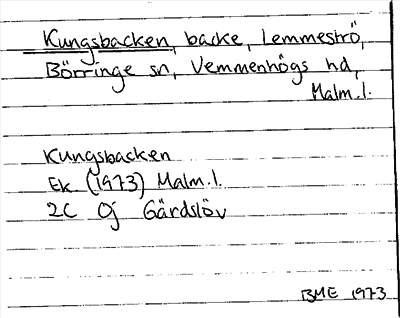 Kungsbacken, backe, Lemmeströ,
Börringe sn, Vemmenhögs hd,
Malm.l.
Kungsbacken
Ek (1973) Malm.l.
2C 0j Gärdslöv
BME 1973